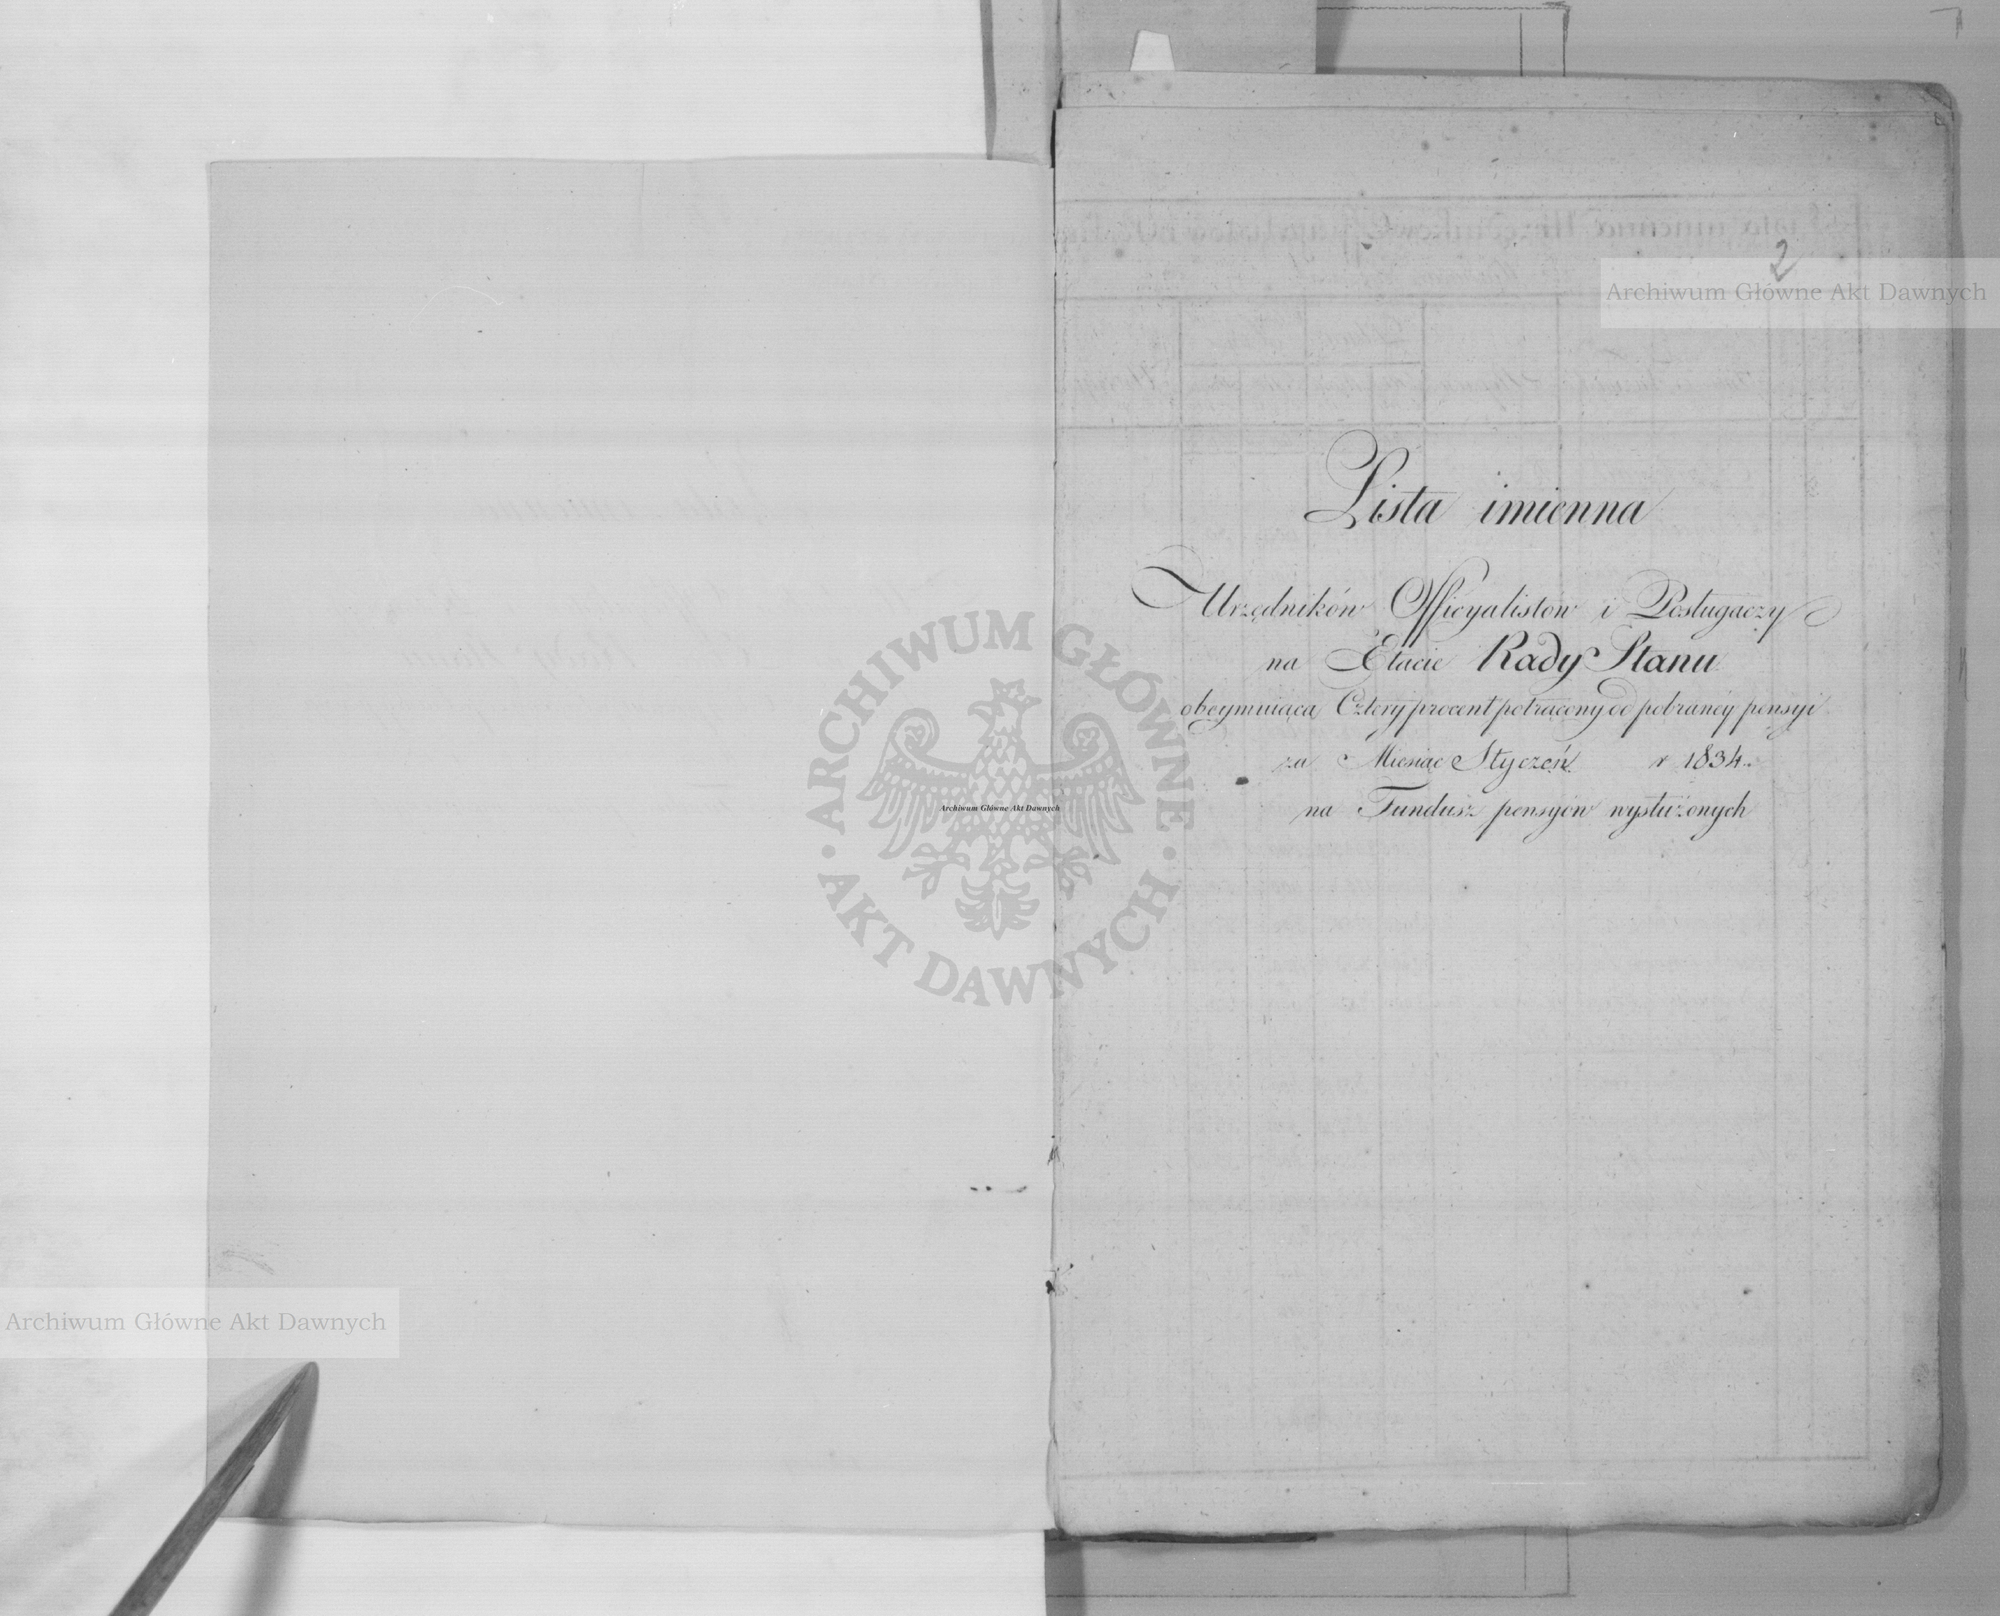 2
Archiwum Główne Akt Dawnych
Lista imienna
Urzędników Officyalistow i Posługaczy
na Etacie Rady Stanu
obeymuiąca Cztery procent potrącony od pobraney pensyi
za Miesiąc Styczeń r 1834.
na Fundusz pensyów wysłużonych
ARCHIWUM GŁÓWNE AKT DAWNYCH
Archiwum Główne Akt Dawnych
Archiwum Główne Akt Dawnych